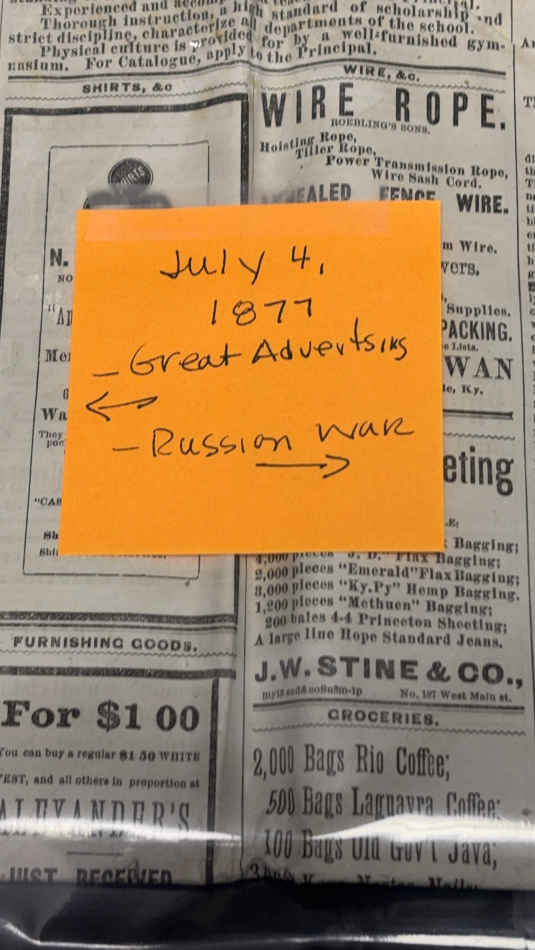 Experienced and
Thorough instruction, a high standard of scholarship and
strict discipline, characterize all departments of the school.
Physical culture is provided for by a well-furnished gym-
nasium. For Catalogue, apply to the Principal.
SHIRTS, &C
N.
NO
Wa
They
"CAR
FURNISHING GOODS.
For $1 00
You can buy a regular $1 50 WHITE
VEST, and all others in proportion at
ALEXANDER'S
JUST RECEIVED
July 4,
1877
- Great Advertsing
- Russion War
WIRE, &c.
WIRE ROPE.
ROEBLING'S SONS.
Hoisting Rope,
Tiller Rope,
Power Transmission Rope,
Wire Sash Cord.
FENCE WIRE.
m Wire.
vers,
Supplies.
PACKING.
e Lists.
WAN
le, Ky.
eting
Bagging;
4,000 pieces "J. D." Flax Bagging;
2,000 pieces "Emerald" Flax Bagging;
3,000 pieces "Ky.Py" Hemp Bagging.
1,200 pieces "Methuen" Bagging;
200 bales 4-4 Princeton Sheeting;
A large line Hope Standard Jeans.
J.W. STINE & CO.,
No. 197 West Main st.
GROCERIES.
2,000 Bags Rio Coffee;
500 Bags Laguayra Coffee;
100 Bags Old Gov't Java;